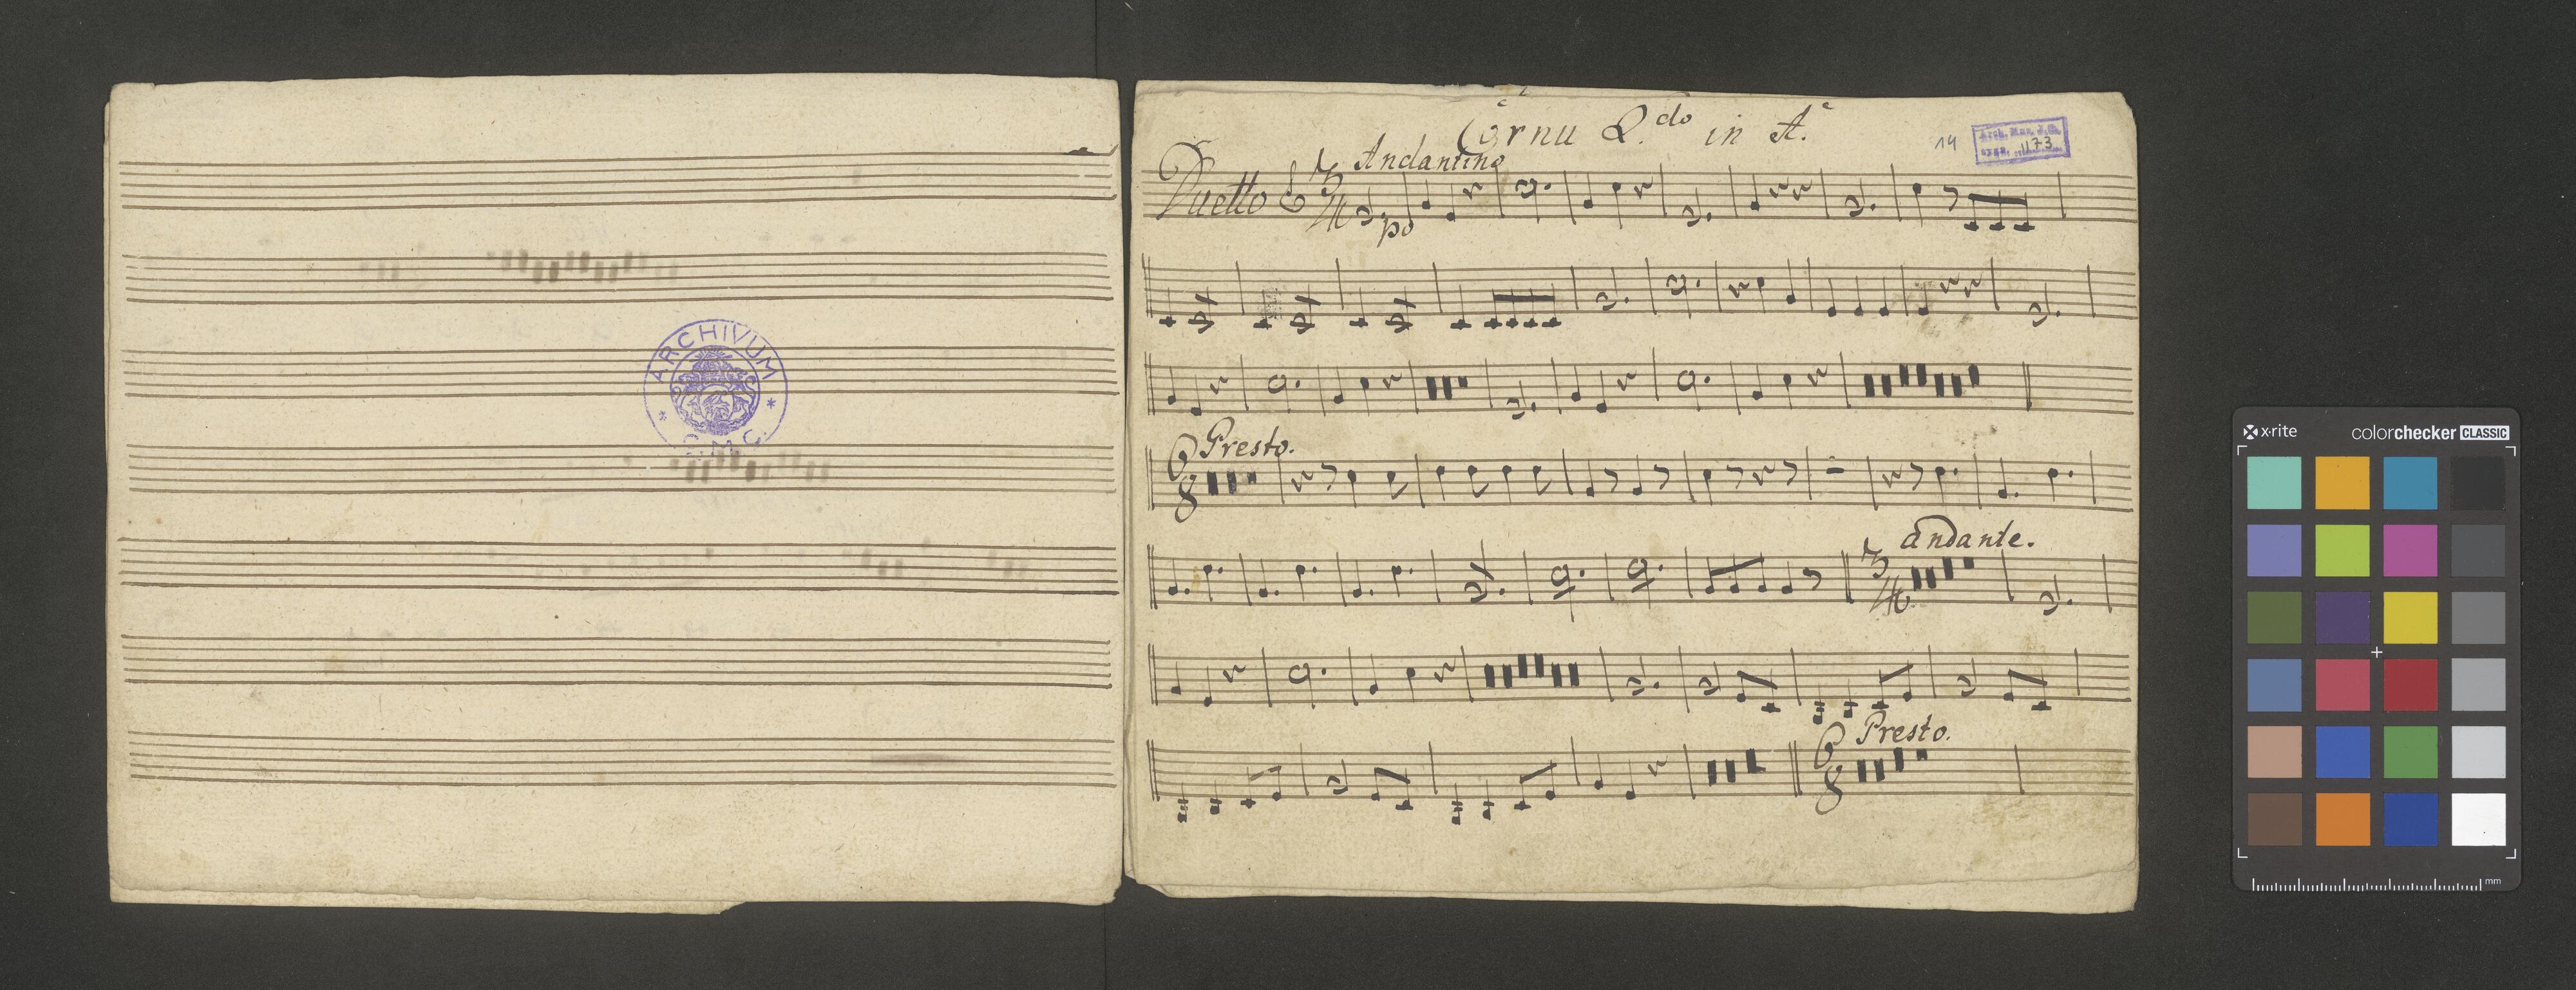 ARCHIVUM
C.M.C.
Cornu 2.do in A.
14
Arch. Mus. J. G.
sygn. 1173
Duetto
3/4
Andantino
po
6/8
Presto.
3/4
andante.
6/8
Presto.
x·rite
colorchecker CLASSIC
mm